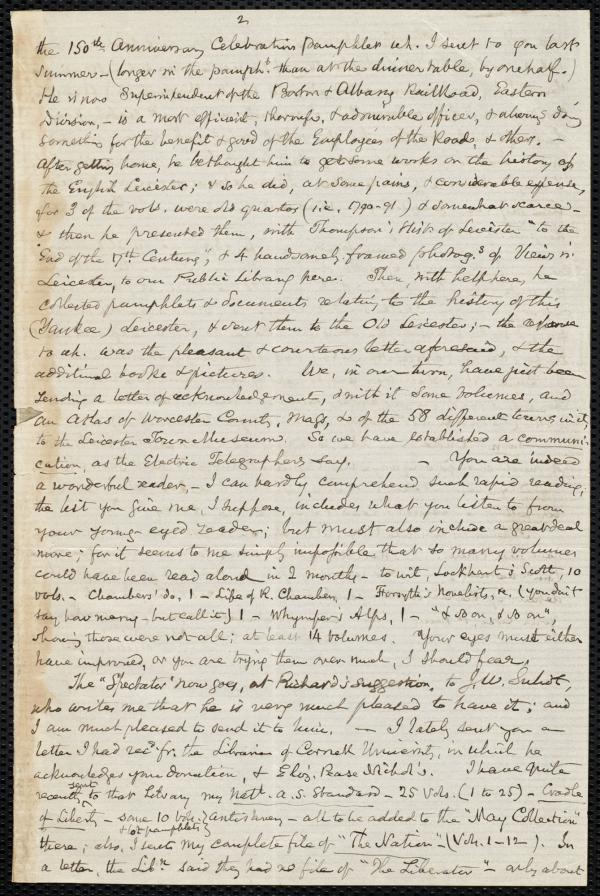 2
the 150th Anniversary Celebration pamphlet wh. I sent to you last
summer - (longer in the pamph.t than at the dinner table, by one half.)
He is now Superintendent of the Boston & Albany Railroad, Eastern
Division, - is a most efficient, thorough, & admirable officer, & always doing
something for the benefit & good of the Employees of the Road, & others. -
After getting home, he bethought him to get some works on the history of
the English Leicester; & so he did, at some pains, & considerable expense,
for 3 of the vols. were old quartos (i.e. 1790-91) & somewhat scarce -
& then he presented them, with Thompson's Hist. of Leicester "to the
End of the 17th Century," & 4 handsomely framed photog.s of Views in
Leicester, to our Public Library here. Then, with help here, he
collected pamphlets & documents relating to the history of this
(Yankee) Leicester, & sent them to the Old Leicester; - the response
to wh. was the pleasant & courteous letter aforesaid, & the
additional books & pictures. We, in our turn, have just been
sending a letter of acknowledgement, & with it some volumes, and
an Atlas of Worcester County, Mass, & of the 58 different towns in it,
to the Leicester Town Museum. So we have established a communi-
cation, as the Electric Telegraphers say. - You are indeed
a wonderful reader, - I can hardly comprehend such rapid reading;
the list you give me, I suppose, includes what you listen to from
your younger eyed reader; but must also include a great deal
more; for it seems to me simply impossible that so many volumes
could have been read aloud in 2 months - to wit, Lockhart's Scott, 10
vols. - Chambers' do, 1 - Life of R. Chambers, 1 - Forsyth's Novelists, &c, (you don't
say how many - but call it) 1 - Whymper's Alps, 1 - "& so on, & so on",
showing those were not all; at least 14 volumes. Your eyes must either
have improved, or you are trying them over much, I should fear.
The "Spectator" now goes, at Richard's suggestion, to J. W.
who writes me that he is very much pleased to have it; and
I am much pleased to send it to him. - I lately sent you a
letter I had rec.d fr. the Librarian of Cornell University, in which he
acknowledges your donation, & Eliz. Pease Nichol's. I have quite
recently sent to that Library my Nat.l A. S. Standard - 25 Vols. (1 to 25) - Cradle
of Liberty - some 10 vols. & lot pamphlets antislavery - all to be added to the "May Collection"
there; also, I sent my complete file of "The Nation" - (Vols. 1-12). In
a letter, the Lib.n said they had no file of "The Liberator" - only about